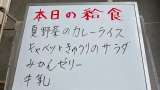 本日の給食
夏野菜のカレーライス
キャベツときゅうりのサラダ
みかんゼリー
牛乳